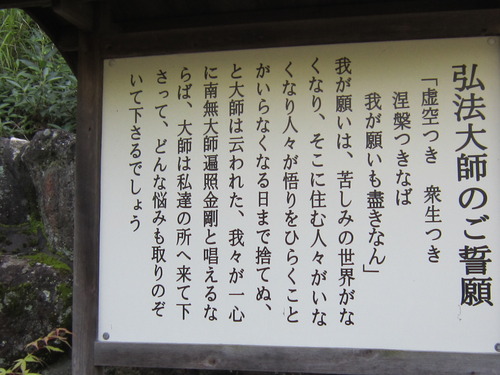 弘法大師のご誓願
「虚空つき 衆生つき
涅槃つきなば
我が願いも盡きなん」
我が願いは、苦しみの世界がな
くなり、そこに住む人々がいな
くなり人々が悟りをひらくこと
がいらなくなる日まで捨てぬ、
と大師は云われた、我々が一心
に南無大師遍照金剛と唱えるな
らば、大師は私達の所へ来て下
さって、どんな悩みも取りのぞ
いて下さるでしょう